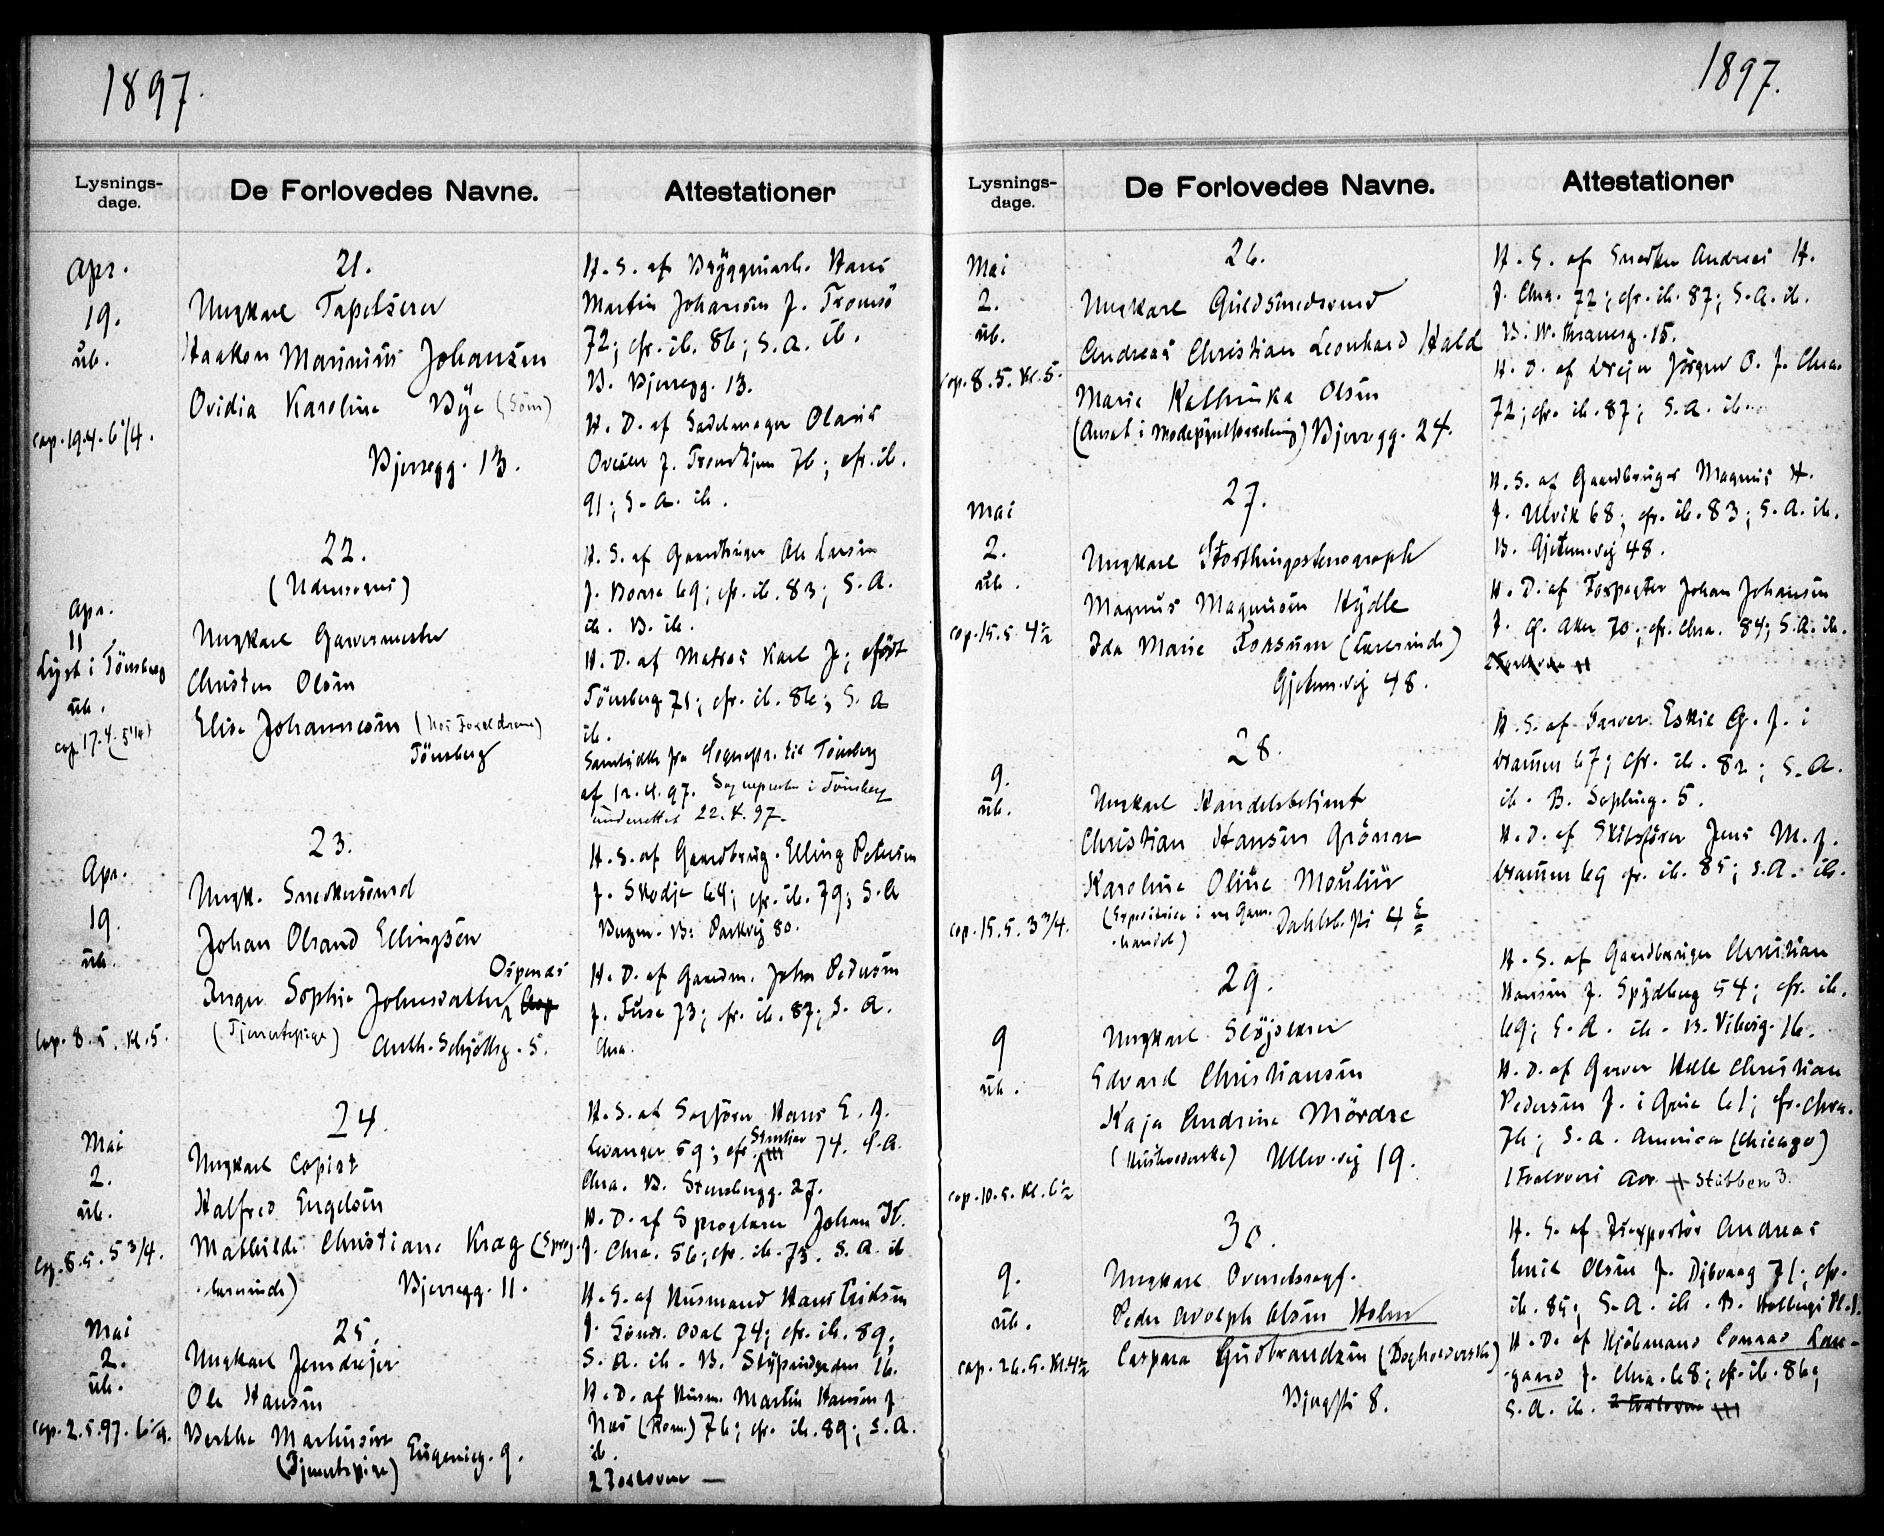 1897.
Lysnings-
dage.
De Forlovedes Navne.
Attestationer
Apr.
19.
üb.
cop. 19.4. 6¼.
21.
Ungkarl Tapetserer
Haakon Marinius Johansen
Ovidia Karoline Bye (Søm)
Bjerregg. 13.
H. S. af Bryggeriarb. Hans
Martin Johansen f. Tromsö
72; cfr. ib. 86; S. A. ib.
B. Bjerregg. 13.
H. D. af Sadelmager Olaus
f. Trondhjem 76; cfr. ib.
91; S. A. ib.
Apr.
11
Lyst i Tönsberg
üb.
cop. 17.4. (5¼)
22.
(Udensogns)
Ungkarl Garvermester
Christen Olsen
Elise Johannesen (hos Forældrene)
Tönsberg
H. S. af Gaardbruger Ole Larsen
f. Borre 69; cfr. ib. 83; S. A.
ib. B. ib.
H. D. af Matros Karl J.; født
Tönsberg 71; cfr. ib. 86; S. A
ib.
Samtykke fra Sognepr. til Tönsberg
af 12.4.97. Sognepresten i Tönsberg
underrettet 22.4.97.
Apr.
19.
üb.
Cop. 8.5. Kl. 5.
23.
Ungk. Snedkersvend
Johan Olsand Ellingsen
Inger Sophie Johnsdatter Ospenæs
(Tjenestepige) Anth. Schjöttsg. 5.
H. S. af Gaardbrug. Elling Petersen
f. Skodje 64; cfr. ib. 79; S. A
Bergen. B: Parkvej 80.
H. D. af Gaardm. John Pedersen
f. Fuse 73; cfr. ib. 87; S. A.
Chra.
Mai
2.
üb.
Cop. 8.5. 5¾.
24.
Ungkarl Copist
Halfred Engelsen
Mathilde Christiane Krag (Sprog-
lærerinde) Bjerregg. 11.
H. S. af Sagfører Hans E. f.
Levanger 59; cfr. Stenkjær 74. S. A.
Chra. B. Stensbergg. 27.
H. D. af Sproglærer Johan K.
f. Chra. 56; cfr. ib. 73. S. A. ib
Mai
2.
üb.
cop. 2.5.97. 6¼.
25.
Ungkarl Jerndrejer
Ole Hansen
Berthe Marthisen
(Tjenestepige) Eugenieg. 9.
H. S. af Husmand Hans Eriksen
f. Söndr. Odal 74; cfr. ib. 89;
S. A. ib. B. 16.
H. D. af Husm. Martin Hansen f.
Næs (Rom.) 76; cfr. ib. 89; S. A.
ib.
2 Forlovere —
1897.
Lysnings-
dage.
De Forlovedes Navne.
Attestationer
Mai
2.
üb.
cop. 8.5. Kl. 5.
26.
Ungkarl Guldsmedsvend
Andreas Christian Leonhard Hald
Marie Kathinka Olsen
(Ansat i Modepyntforretning) Bjerregg. 24.
H. S. af Snedker Andreas H.
f. Chra. 72; cfr. ib. 87; S. A. ib.
B. W. Thranesg. 15.
H. D. af Dreyer Jörgen O. f. Chra.
72; cfr. ib. 87; S. A. ib.
Mai
2.
üb.
cop. 15.5. 4½
27.
Ungkarl Storthingsstenograph
Magnus Magnusen Hydle
Ida Marie Forsum (Lærerinde)
Gjetem.vej 48.
H. S. af Gaardbruger Magnus H.
f. Ulvik 68; cfr. ib. 83; S. A. ib.
B. Gjetem.vej 48.
H. D. af Forpagter Johan Johansen
f. Ø. Aker 70; cfr. Chra. 84; S. A. ib.
2 Forlovere
9.
üb.
cop. 15.5. 3¾.
28.
Ungkarl Handelsbetjent
Christian Hansen Grönner
Karoline Oline
(Expeditrice i en Garn-
handel) Dahlsb.sti 4 E
H. S. af Garver Eskil G. f. i
Drammen 67; cfr. ib. 82; S. A.
ib. B. Sophieg. 5.
H. D. af Skibsfører Jens M. f.
Drammen 69 cfr. ib. 85; S. A. ib.
9
üb.
cop. 10.5. Kl. 6½
29.
Ungkarl Slöjdlærer
Edvard Christiansen
Kaja Andrine Mördre
(Husholderske) Ullev.vej 19.
H. S. af Gaardbruger Christian
Hansen f. Spydberg 54; cfr. ib.
69; S. A. ib. B. Vibesg. 16.
H. D. af Garver Helle Christian
Pedersen f. i Grue 61; cfr. Chra.
76; S. A. America (Chicago)
1 Forlover Adr. Stubben 3.
9.
üb.
cop. 26.5. Kl. 4½
30.
Ungkarl
Peder Adolph Olsen Holm
Caspara Gudbrandsen (Dagholderske)
Bjergsti 8.
H. S. af Andreas
Emil Olsen f. Dybvaag 71; cfr.
ib. 85; S. A. ib. B. Holbergs Pl. 1.
H. D. af Kjöbmand Conrad Lan-
gaard f. Chra. 68; cfr. ib. 86;
S. A. ib. 2 Forlovere